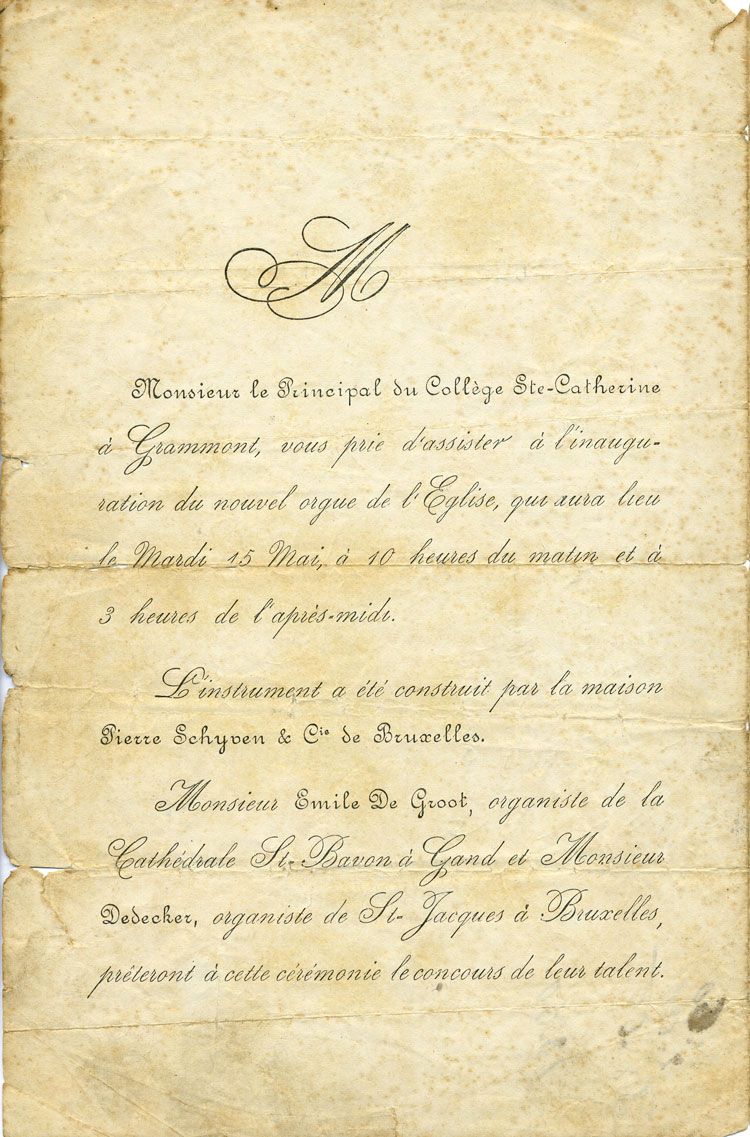 M
Monsieur le Principal du Collège Ste-Catherine
à Grammont, vous prie d'assister à l'inaugu-
ration du nouvel orgue de l'Eglise, qui aura lieu
le Mardi 15 Mai, à 10 heures du matin et à
3 heures de l'après-midi.
L'instrument a été construit par la maison
Pierre Schyven & Cie de Bruxelles.
Monsieur Emile De Groot, organiste de la
Cathédrale St-Bavon à Gand et Monsieur
Dedecker, organiste de St-Jacques à Bruxelles,
prêteront à cette cérémonie le concours de leur talent.